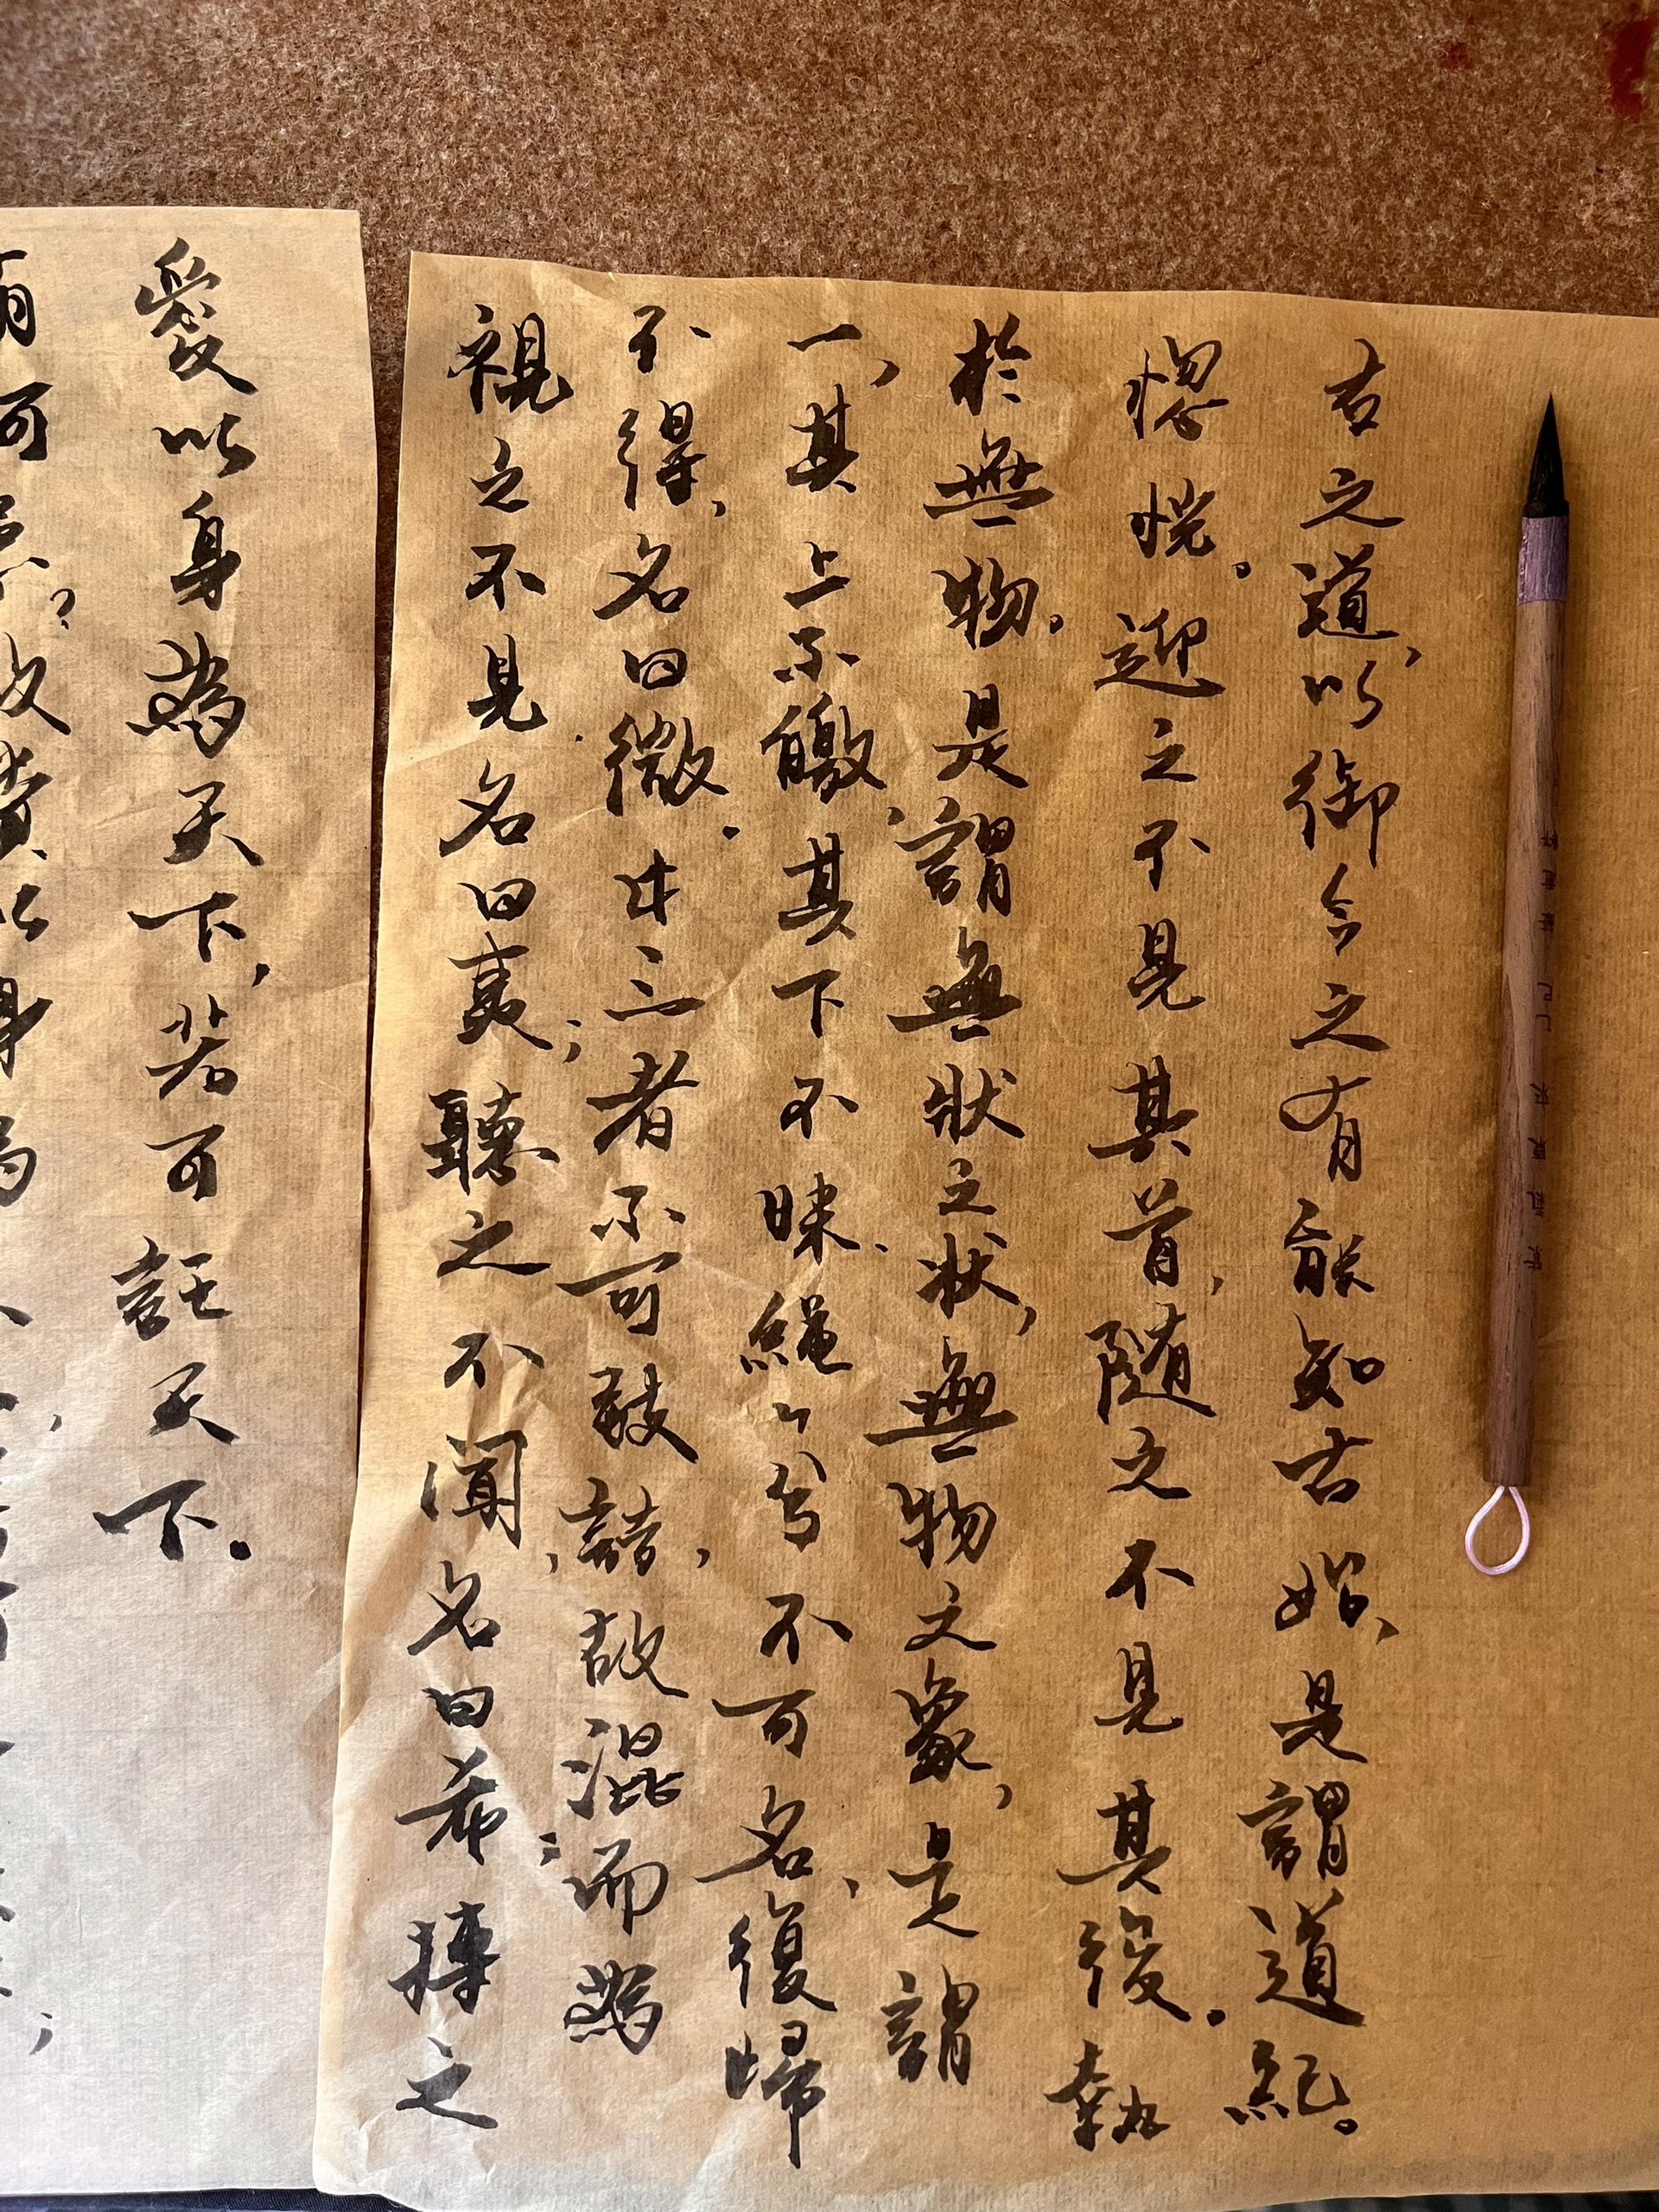 愛以身為天下，若可託天下。
視之不見名曰夷；聽之不聞，名曰希；搏之
不得，名曰微。此三者不可致詰，故混而為
一，其上不皦，其下不昧，繩々兮不可名，復歸
於無物。是謂無狀之狀，無物之象，是謂
惚恍。迎之不見其首，隨之不見其後。執
古之道，以御今之有，能知古始，是謂道紀。